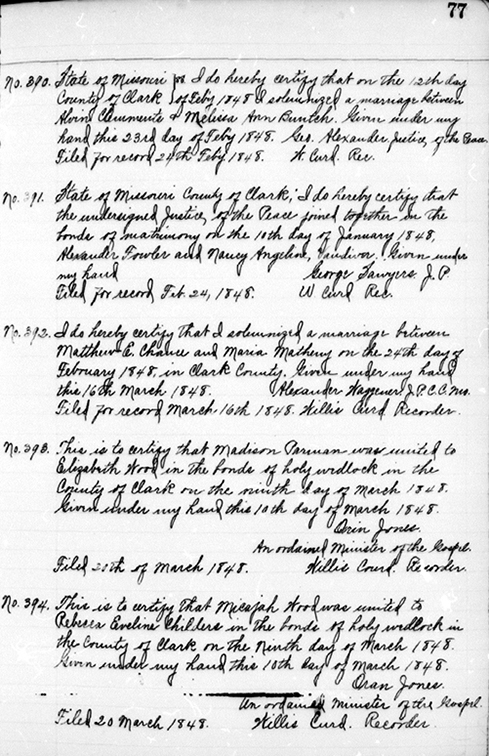 77
No. 390. State of Missouri } ss I do hereby certify that on the 12th day
County of Clark } of Feby 1848 I solemnized a marriage between
Alvin Clements & Melissa Ann Buntch. Given under my
hand this 23rd day of Feby 1848. Geo. Alexander, Justice, of the Peace.
Filed for record 24th Feby 1848. W. Curd. Rec.
No. 391. State of Missouri County of Clark; I do hereby certify that
the undersigned Justice, of the Peace joined together in the
bonds of matrimony on the 10th day of January 1848,
Alexander Fowler and Nancy Angeline, Vandiver. Given under
my hand George Sawyers, J. P.
Filed for record Feb. 24, 1848. W. Curd Rec.
No. 392. I do hereby certify that I solemnized a marriage between
Matthew E. Chance and Maria Matheny on the 24th day of
February 1848. in Clark County. Given under my hand
this 16th March 1848. Alexander Waggener. J. P. C. C. Mo.
Filed for record March 16th 1848. Willis Curd Recorder.
No. 393. This is to certify that Madison Parman was united to
Elizabeth Wood in the bonds of holy wedlock in the
County of Clark on the ninth day of March 1848.
Given under my hand this 10th day of March 1848.
Orin Jones.
An ordained Minister of the Gospel.
Filed 20th of March 1848. Willis Courd. Recorder.
No. 394. This is to certify that Micajah Wood was united to
Rebecca Eveline Childers in the bonds of holy wedlock in
the County of Clark on the Ninth day of March 1848.
Given under my hand this 10th day of March 1848.
Oran Jones.
An ordained Minister of the Gospel.
Filed 20 March 1848. Willis Curd. Recorder.